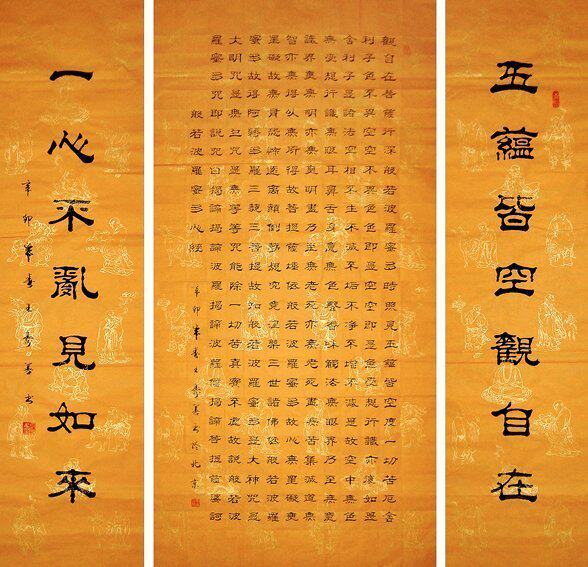 五蘊皆空觀自在
觀自在菩薩行深般若波羅蜜多時照見五蘊皆空度一切苦厄舍
利子色不異空空不異色色即是空空即是色受想行識亦復如是
舍利子是諸法空相不生不滅不垢不淨不增不減是故空中無色
無受想行識無眼耳鼻舌身意無色聲香味觸法無眼界乃至無意
識界無無明亦無無明盡乃至無老死亦無老死盡無苦集滅道無
智亦無得以無所得故菩提薩埵依般若波羅蜜多故心無罣礙無
罣礙故無有恐怖遠離顛倒夢想究竟涅槃三世諸佛依般若波羅
蜜多故得阿耨多羅三藐三菩提故知般若波羅蜜多是大神咒是
大明咒是無上咒是無等等咒能除一切苦真實不虛故說般若波
羅蜜多咒即說咒曰揭諦揭諦波羅揭諦波羅僧揭諦菩提薩婆訶
般若波羅蜜多心經
辛卯年春王善書於北京
一心不亂見如來
辛卯年春王善書